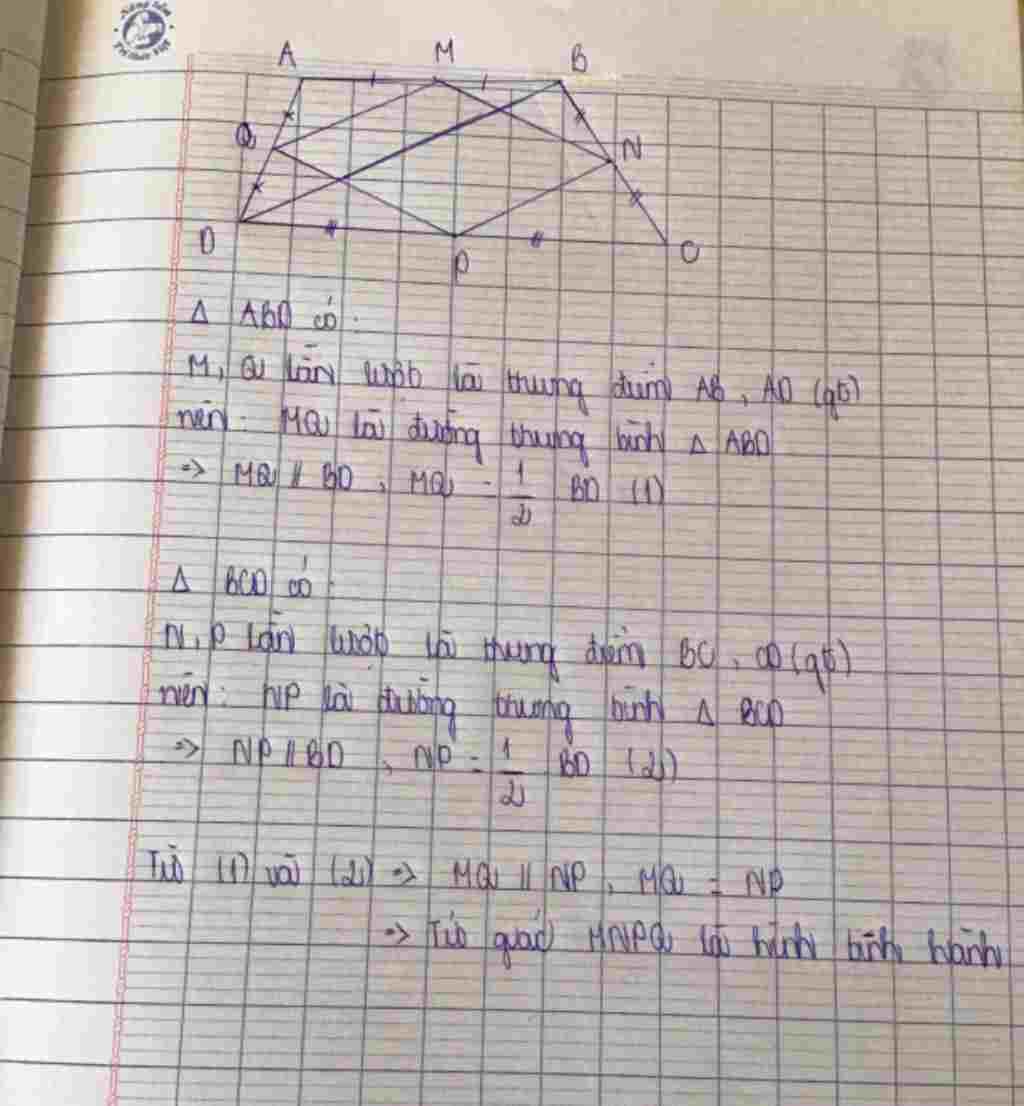 Nâng tầm
Tri thức Việt
A M B
Q N
D P C
Δ ABD có:
M, Q lần lượt là trung điểm AB, AD (gt)
nên: MQ là đường trung bình Δ ABD
=> MQ // BD, MQ = 1/2 BD (1)
Δ BCD có:
N, P lần lượt là trung điểm BC, CD (gt)
nên: NP là đường trung bình Δ BCD
=> NP // BD, NP = 1/2 BD (2)
Từ (1) và (2) => MQ // NP, MQ = NP
=> Tứ giác MNPQ là hình bình hành